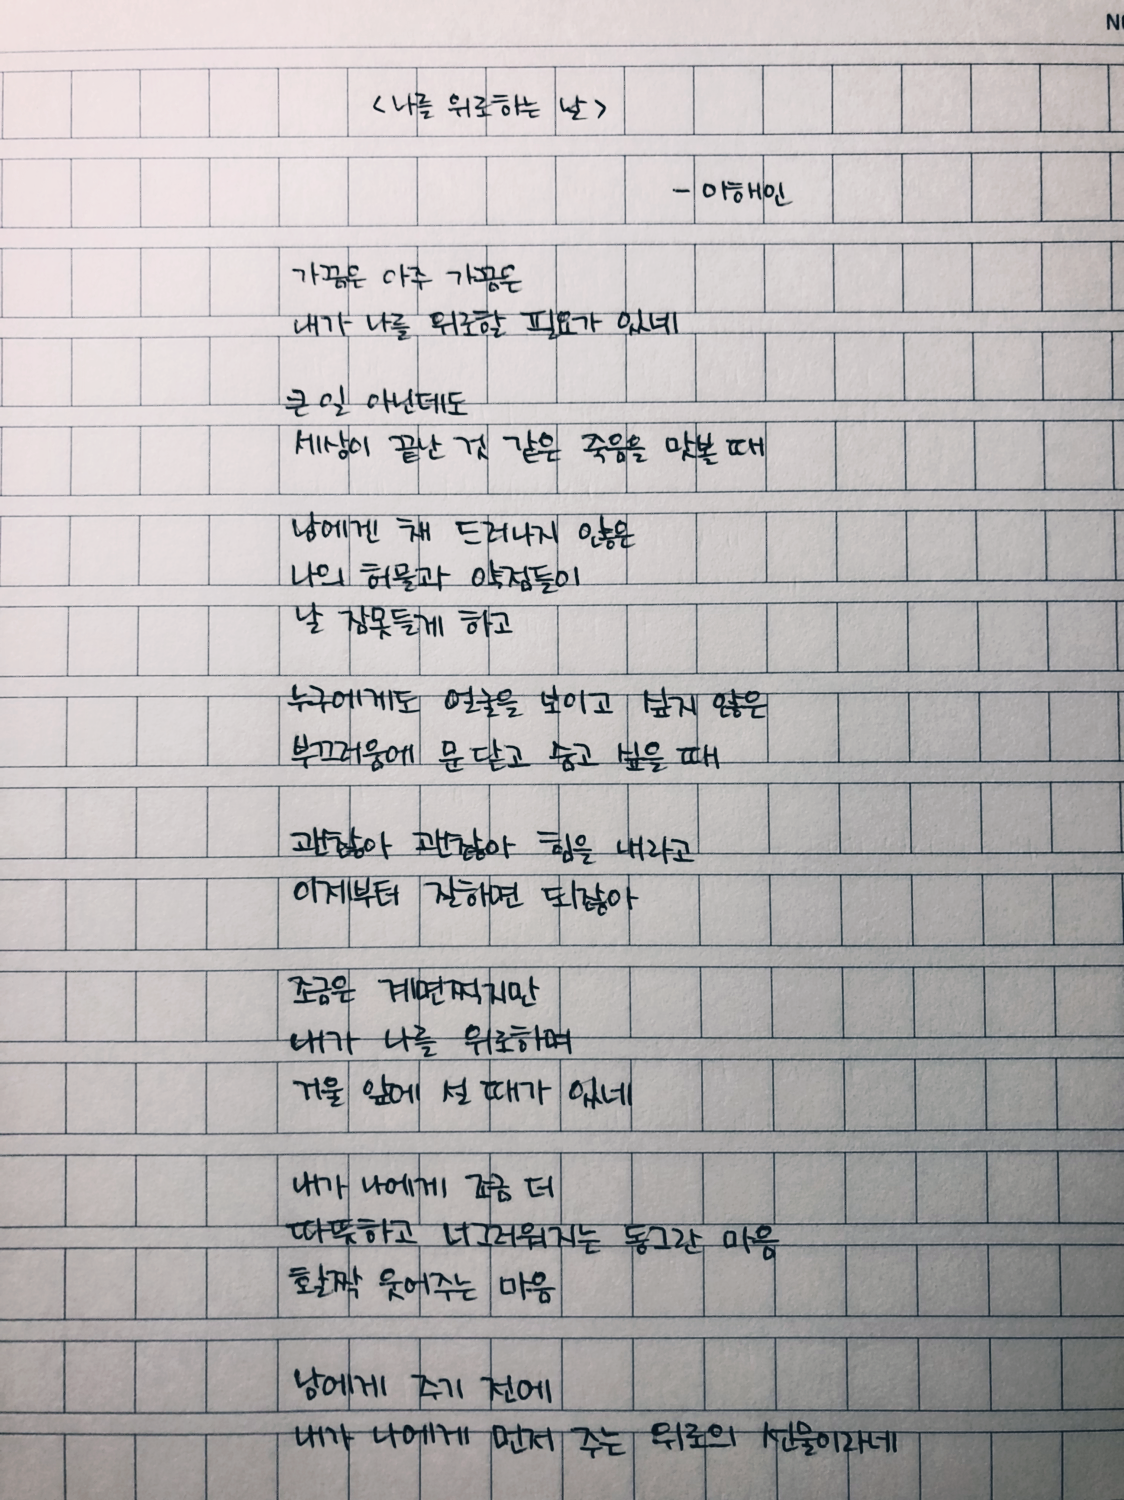 <나를 위로하는 날>
- 이해인
가끔은 아주 가끔은
내가 나를 위로할 필요가 있네
큰 일 아닌데도
세상이 끝난 것 같은 죽음을 맛볼 때
남에겐 채 드러나지 않은
나의 허물과 약점들이
날 잠못들게 하고
누구에게도 얼굴을 보이고 싶지 않은
부끄러움에 문 닫고 숨고 싶을 때
괜찮아 괜찮아 힘을 내라고
이제부터 잘하면 되잖아
조금은 계면쩍지만
내가 나를 위로하며
거울 앞에 설 때가 있네
내가 나에게 조금 더
따뜻하고 너그러워지는 동그란 마음
활짝 웃어주는 마음
남에게 주기 전에
내가 나에게 먼저 주는 위로의 선물이라네